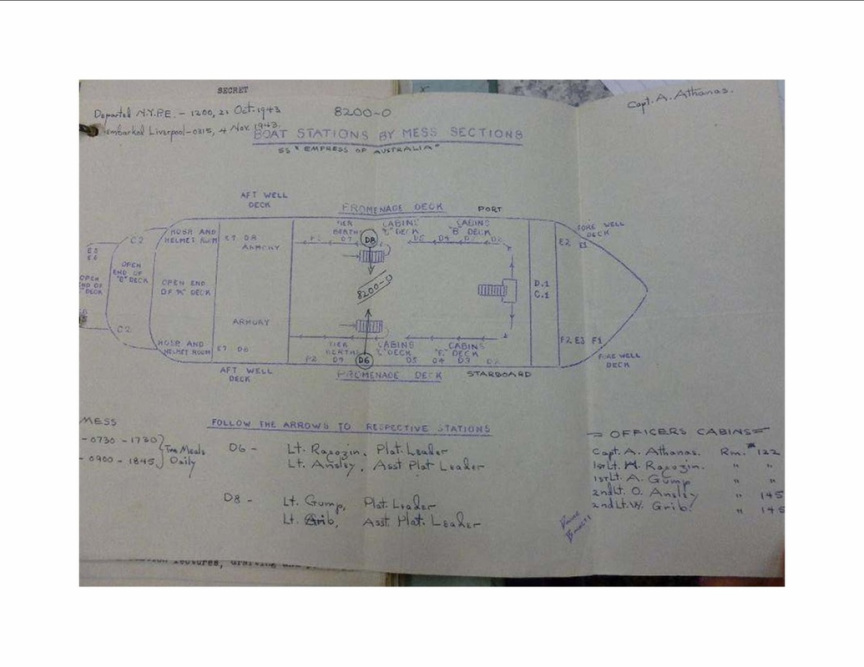 SECRET
Capt. A. Athanas.
Departed N.Y.P.E. - 1200, 21 Oct. 1943
8200-O
embarked Liverpool - 0315, 4 Nov. 1943.
BOAT STATIONS BY MESS SECTIONS
SS "EMPRESS OF AUSTRALIA"
AFT WELL
DECK
PROMENADE DECK
PORT
TIER CABINS CABINS
BERTHS DECK "B" DECK
FORE WELL
DECK
C2
HOSH AND
HELMET ROOM
E7 D8
ARMORY
D8
E2 E1
E5
E6
OPEN
END OF
DECK
OPEN
END OF
DECK
OPEN END
OF "A" DECK
8200-O
D.1
C.1
ARMORY
C2
HOSH AND
HELMET ROOM
E7 D6
TIER CABINS CABINS
BERTHS "C" DECK DECK
F2 D9 D6 D5 D4 D3 D2
F2 E3 F1
FORE WELL
DECK
AFT WELL
DECK
PROMENADE DECK
STARBOARD
MESS
- 0730 - 1730
- 0900 - 1845
Two Meals
Daily
FOLLOW THE ARROWS TO RESPECTIVE STATIONS
D6 - Lt. Rapozin, Plat. Leader
Lt. Ansley, Asst Plat Leader
D8 - Lt. Gump, Plat. Leader
Lt. Grib, Asst Plat. Leader
= OFFICERS CABINS =
Capt. A. Athanas. Rm. # 122
1st Lt. H. Rapozin. " "
1st Lt. A. Gump " "
2nd Lt. O. Ansley " 145
2nd Lt. W. Grib " 145